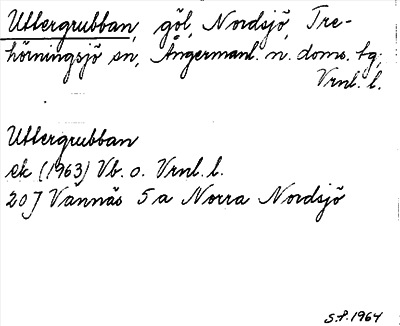 Uttergrubban, göl, Nordsjö, Tre-
hörningsjö sn, Ångermanl. n. doms. tg;
Vrnl. l.
Uttergrubban
ek (1963) Vb. o. Vrnl. l.
20J Vännäs 5a Norra Nordsjö
S.F. 1964